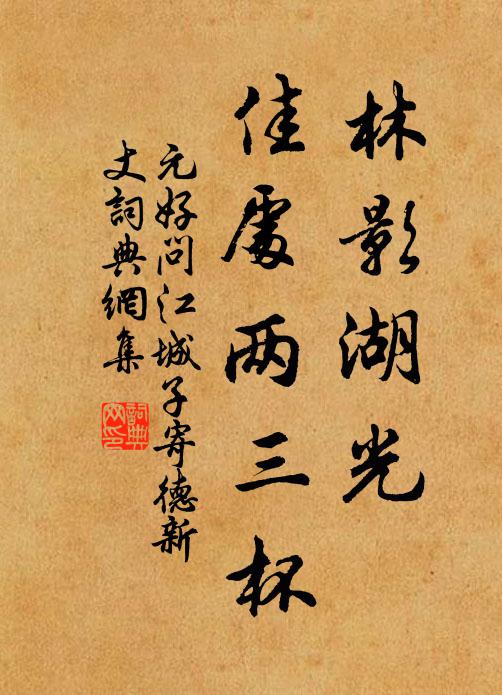 林影湖光
佳處两三杯
元好问江城子寄德新
丈詞典網集
詞典网印